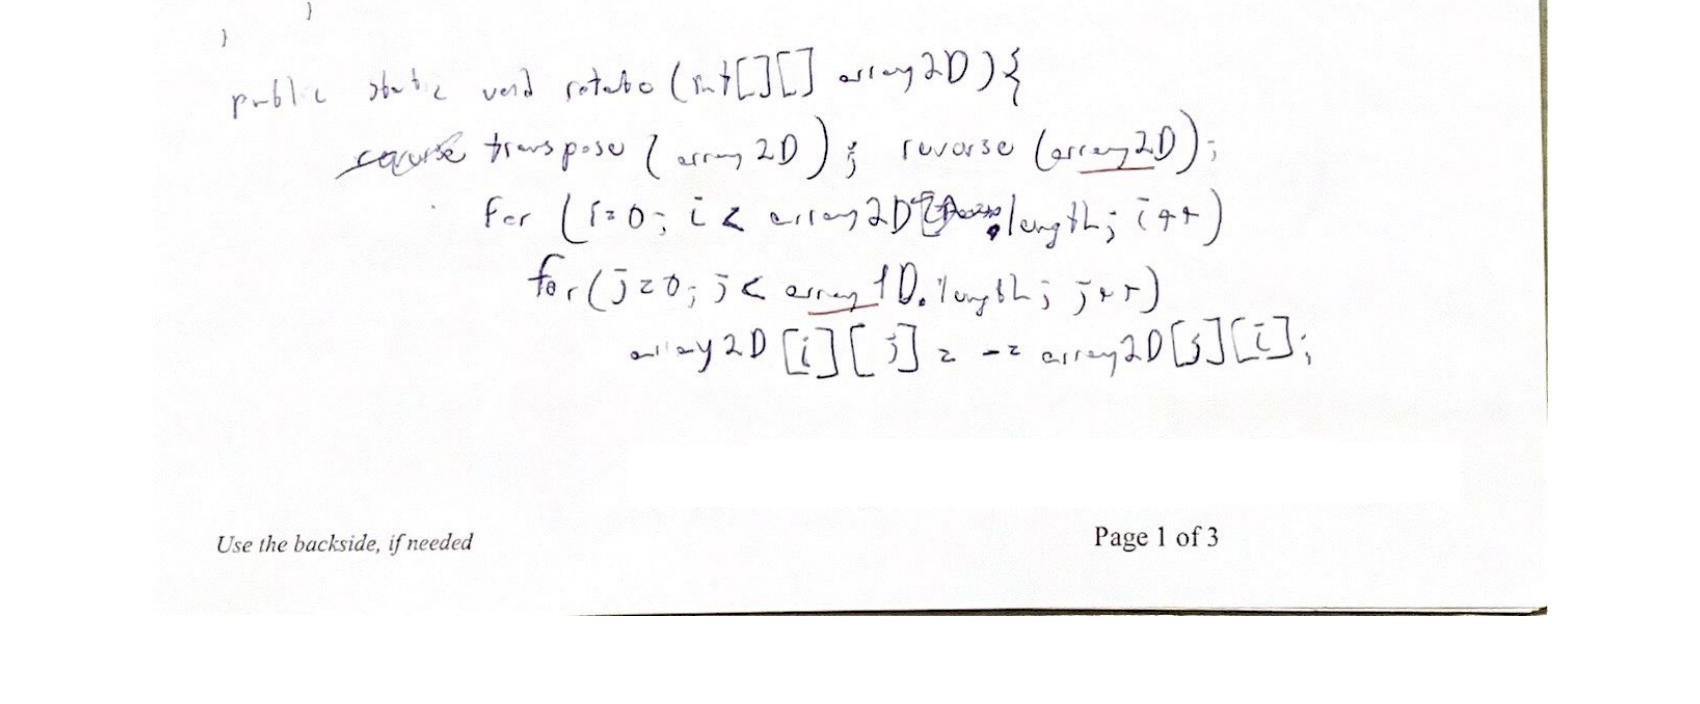 }
}
public static void rotate (int[][] array2D) {
reverse transpose (array 2D) ; reverse (array2D);
for (i=0; i < array2D.length; i++)
for (j=0; j < array 1D.length; j++)
array2D [i][j] = -= array2D[j][i];
Use the backside, if needed
Page 1 of 3